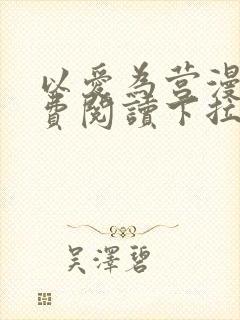 以愛為营漫
費閱讀下拉
吴澤碧